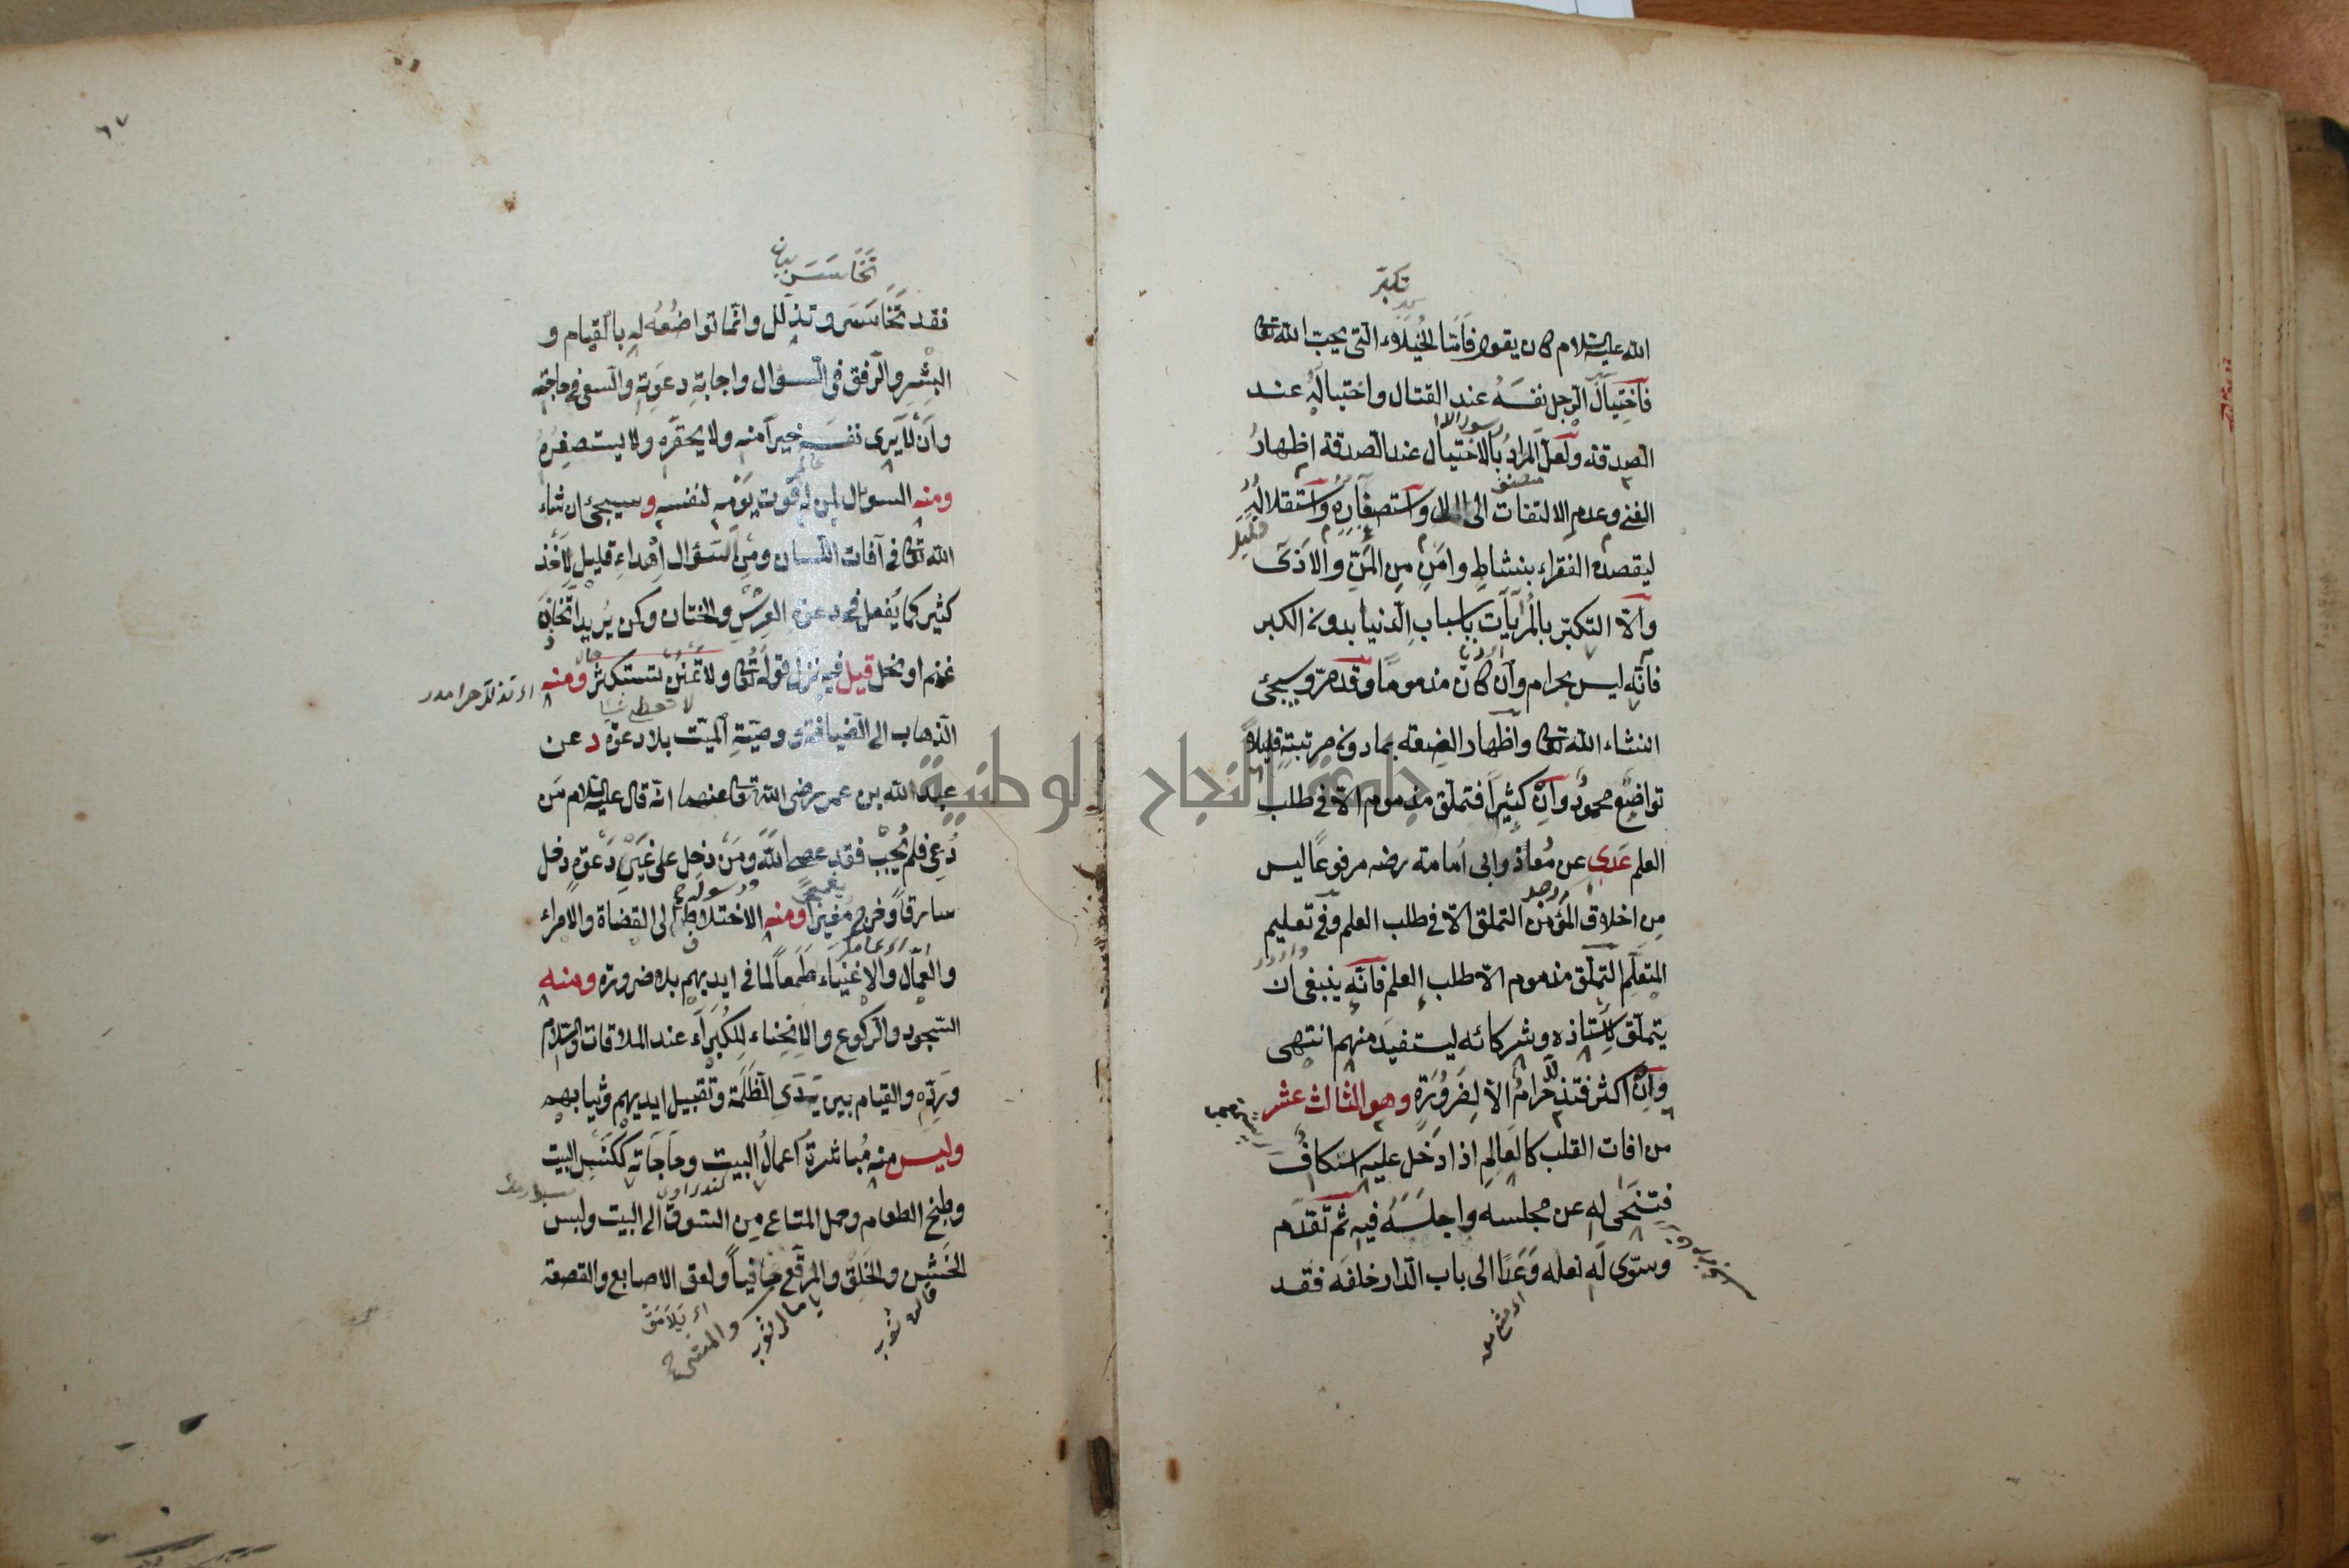 تكبر
الله عليه السلام كان يقول فاما الخيلاء التى يحب الله تعالى
فاختيال الرجل نفسه عند القتال واختياله عند
الصدقة ولعل المراد بالاختيال عند الصدقة اظهار
الغنى وعدم الالتفات الى المال واستصغاره واستقلاله
ليقصده الفقراء بنشاط وامن من المن والاذى
والا التكبر بالمرايات باسباب الدنيا بدون الكبر
فانه ليس بحرام وان كان مذموما وقد مر وسيجئ
انشاء الله تعالى واظهار الضعة بما دون مرتبته قليلا
تواضع محمود وان كثيرا فتملق مذموم الا فى طلب
العلم عدى عن معاذ وابى امامة رضه مرفوعا ليس
من اخلاق المؤمن التملق الا فى طلب العلم وفى تعليم
المتعلم التملق مذموم الا طلب العلم فانه ينبغى ان
يتملق لاستاذه وشركائه ليستفيد منهم انتهى
وان اكثر فتذلل حرام الا لضرورة وهو الثالث عشر
من افات القلب كالعالم اذا دخل عليه اسكاف
فتنحى له عن مجلسه واجلسه فيه ثم تقدم
وسوى له نعله وعدا الى باب الدار خلفه فقد
٦٧
تخاسس
فقد تخاسس وتذلل وانما تواضعه له بالقيام و
البشر والرفق فى السؤال واجابة دعوته والسعى فى حاجته
وان لا يرى نفسه خيرا منه ولا يحقره ولا يستصغره
ومنه السوال لمن له قوت يومه لنفسه وسيجئ ان شاء
الله تعالى فى آفات اللسان ومن السؤال اهداء قليل لاخذ
كثير كما يفعل فى دعوة العرس والختان وكمن يريد اتخاذ
غنم او نحل قيل فيه نزل قوله تعالى ولا تمنن تستكثر ومنه
الذهاب الى الضيافة ووصية الميت بلا دعوة د عن
عبد الله بن عمر رضى الله تعالى عنهما انه قال عليه السلام من
دعى فلم يجب فقد عصى الله ومن دخل على غير دعوة دخل
سارقا وخرج مغيرا ومنه الاختلاط الى القضاة والامراء
والعمال والاغنياء طمعا لما فى ايديهم بلا ضرورة ومنه
السجود والركوع والانحناء للكبراء عند الملاقات والسلام
ورده والقيام بين يدى الظلمة وتقبيل ايديهم وثيابهم
وليس منه مباشرة اعمال البيت وحاجاته ككنس البيت
وطبخ الطعام وحمل المتاع من السوق الى البيت ولبس
الخشن والخلق والمرقع حافيا ولعق الاصابع والقصعة
جامعة النجاح الوطنية